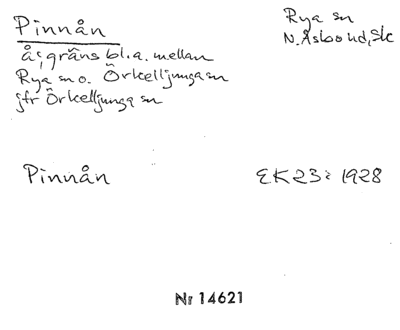 Pinnån
Rya sn
N. Åsbo hd, Sk
å; gräns bl.a. mellan
Rya sn o. Örkelljunga sn
jfr Örkelljunga sn
Pinnån
EK23: 1928
Nr 14621